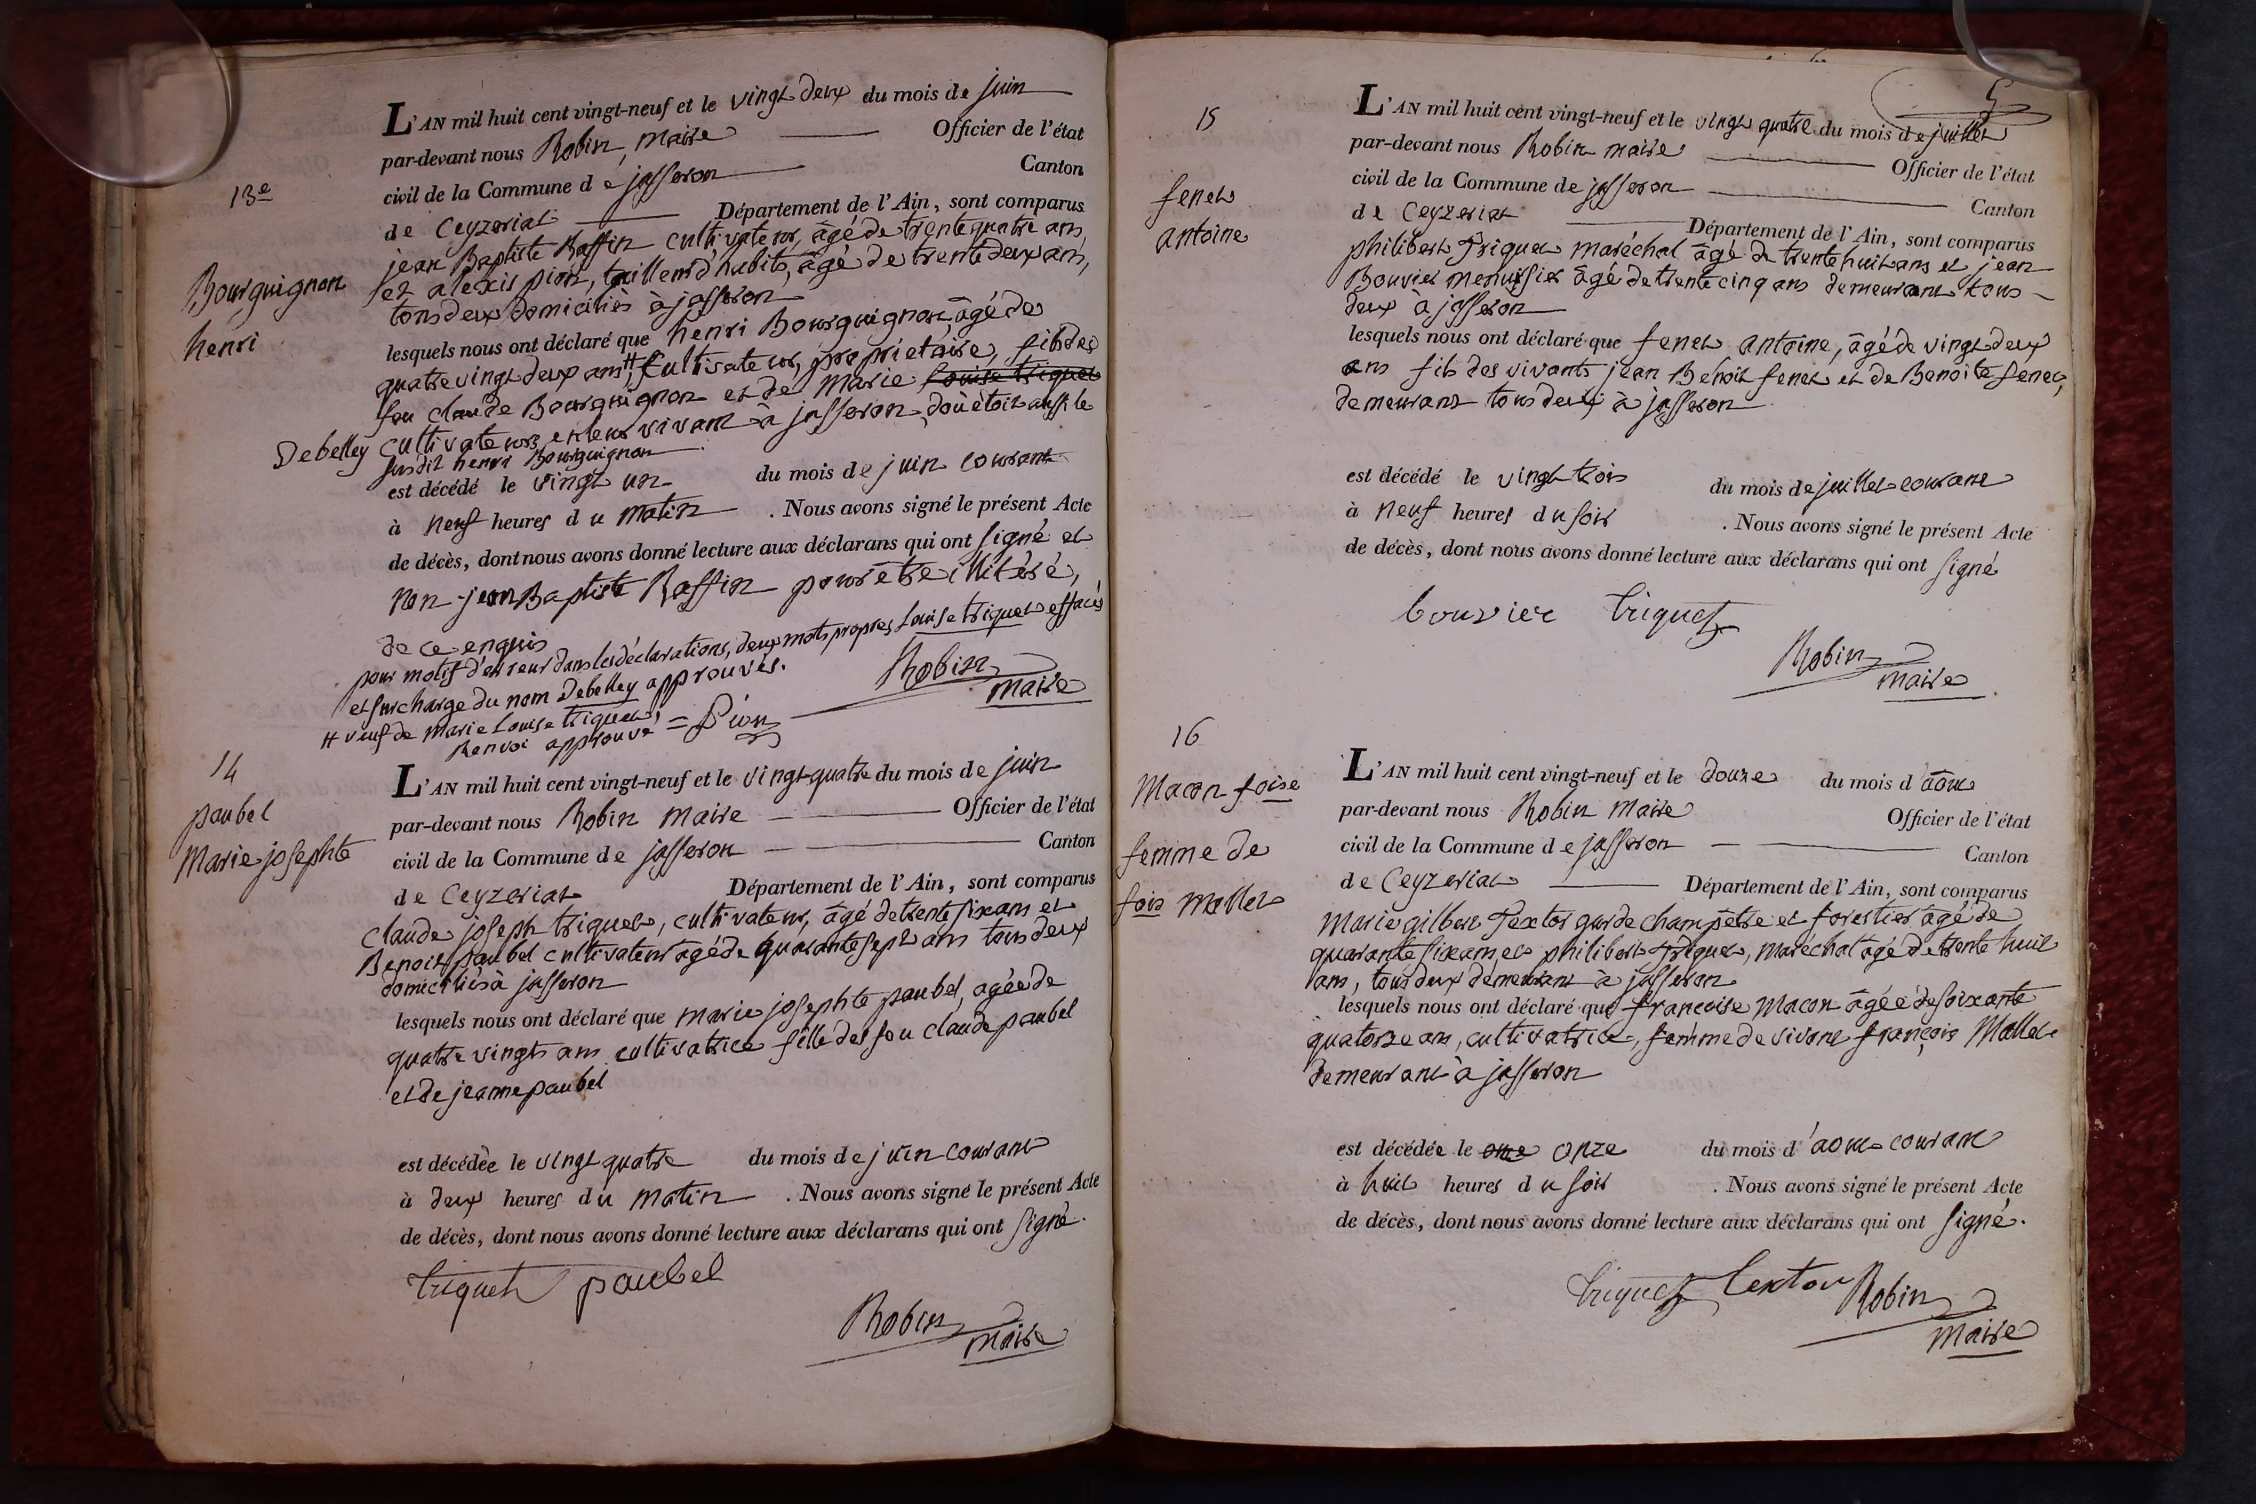 13e
Bourguignon
henri
L'AN mil huit cent vingt-neuf et le vingt deux du mois de juin
par-devant nous Robin, maire Officier de l'état
civil de la Commune de jasseron Canton
de Ceyzeriat Département de l'Ain, sont comparus
jean Baptiste Raffin cultivateur, âgé de trente quatre ans
et alexis pion, tailleur d'habits, âgé de trente deux ans,
tous deux domiciliés à jasseron
lesquels nous ont déclaré que henri Bourguignon, âgé de
quatre vingt deux ans, # Cultivateur, propriétaire, fils des
feu claude Bourguignon et de Marie Louise triquet
Debelley cultivateurs, en leur vivant à jasseron, d'où étoit aussi le
susdit henri Bourguignon
est décédé le vingt un du mois de juin courant
à neuf heures du matin . Nous avons signé le présent Acte
de décès, dont nous avons donné lecture aux déclarans qui ont signé et
non jean Baptiste Raffin pour être illitéré,
de ce enquis
pour motif d'erreur dans les déclarations, deux mots propres Louise triquet effacés
et surcharge du nom Debelley approuvés.
# veuf de marie Louise triquet,
Renvoi approuvé = Pion
Robin
maire
14
paubel
Marie josephte
L'AN mil huit cent vingt-neuf et le vingt-quatre du mois de juin
par-devant nous Robin maire Officier de l'état
civil de la Commune de jasseron Canton
de Ceyzeriat Département de l'Ain, sont comparus
claude joseph triquet, cultivateur, âgé de trente six ans et
Benoit paubel cultivateur agé de quarante sept ans tous deux
domiciliés à jasseron
lesquels nous ont déclaré que marie josephte paubel, agée de
quatre vingts ans cultivatrice fille des feu claude paubel
et de jeanne paubel
est décédée le vingt quatre du mois de juin courant
à deux heures du matin . Nous avons signé le présent Acte
de décès, dont nous avons donné lecture aux déclarans qui ont signé.
triquet paubel
Robin
maire
5
15
fenet
antoine
L'AN mil huit cent vingt-neuf et le vingt quatre du mois de juillet
par-devant nous Robin maire Officier de l'état
civil de la Commune de jasseron Canton
de Ceyzeriat Département de l'Ain, sont comparus
philibert triquet maréchal âgé de trente huit ans et jean
Bouvier menuisier âgé de trente cinq ans demeurant tous
deux à jasseron
lesquels nous ont déclaré que fenet antoine, âgé de vingt deux
ans fils des vivants jean Benoit fenet et de Benoite fenet,
demeurant tous deux à jasseron
est décédé le vingt trois du mois de juillet courant
à neuf heures du soir . Nous avons signé le présent Acte
de décès, dont nous avons donné lecture aux déclarans qui ont signé
bouvier triquet
Robin
maire
16
Macon foise
femme de
fois Mollet
L'AN mil huit cent vingt-neuf et le douze du mois d'août
par-devant nous Robin maire Officier de l'état
civil de la Commune de jasseron Canton
de Ceyzeriat Département de l'Ain, sont comparus
Marie gilbert Textor garde champêtre et forestier âgé de
quarante six ans et philibert triquet, maréchal agé de trente huit
ans, tous deux demeurant à jasseron
lesquels nous ont déclaré que francoise Macon âgée de soixante
quatorze ans, cultivatrice, femme de vivant françois Mollet
demeurant à jasseron
est décédée le onze onze du mois d'aout courant
à huit heures du soir . Nous avons signé le présent Acte
de décès, dont nous avons donné lecture aux déclarans qui ont signé.
triquet textor Robin
maire